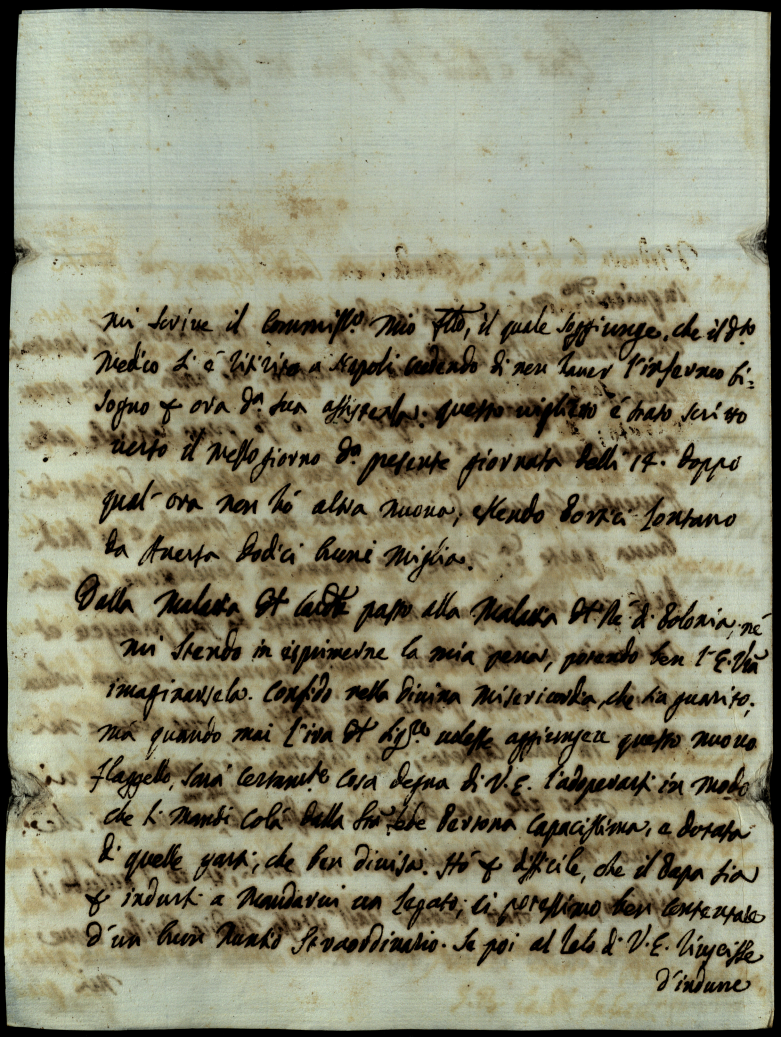 mi scrive il Commiss.o mio fllo, il quale soggiunge, che il d.to
Medico si è ritirato a Napoli credendo di non haver l'infermo bi-
sogno p ora d.a sua assistenza. questo viglietto è stato scritto
verso il mezzo giorno d.a presente giornata delli 14. doppo
qual ora non hò altra nuova; essendo Portici lontano
da Aversa dodici buoni miglia.
Dalla malatia del Cardle passo alla malatia del Rè di Polonia; nè
mi stendo in esprimerne la mia pena, potendo ben l'E. Vra
imaginarsela. Confido nella divina misericordia, che sia guarito;
mà quando mai l'ira del Sig.re volesse aggiungere questo nuovo
flaggello, sarà certam.te cosa degna di V.E. l'adoperarsi in modo
che si mandi colà dalla Sta Sede Persona capacissima, e dotata
di quelle parti, che ben divisa. Hò p difficile, che il Papa sia
p indursi a mandarvi un Legato; ci potressimo ben contentare
d'un buon Nuntio straordinario. Se poi al zelo di V.E. riuscisse
d'indurre